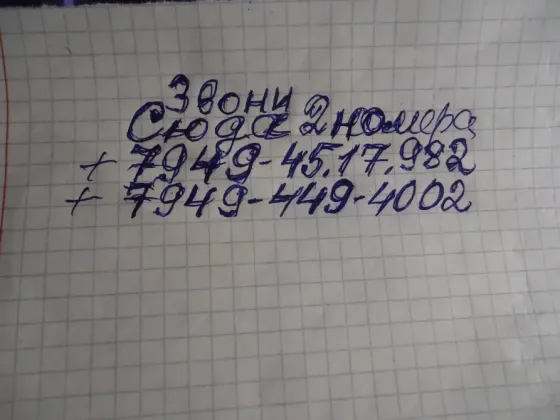 Звони
Сюда 2 номера
+ 7949-45.17.982
+ 7949-449-4002